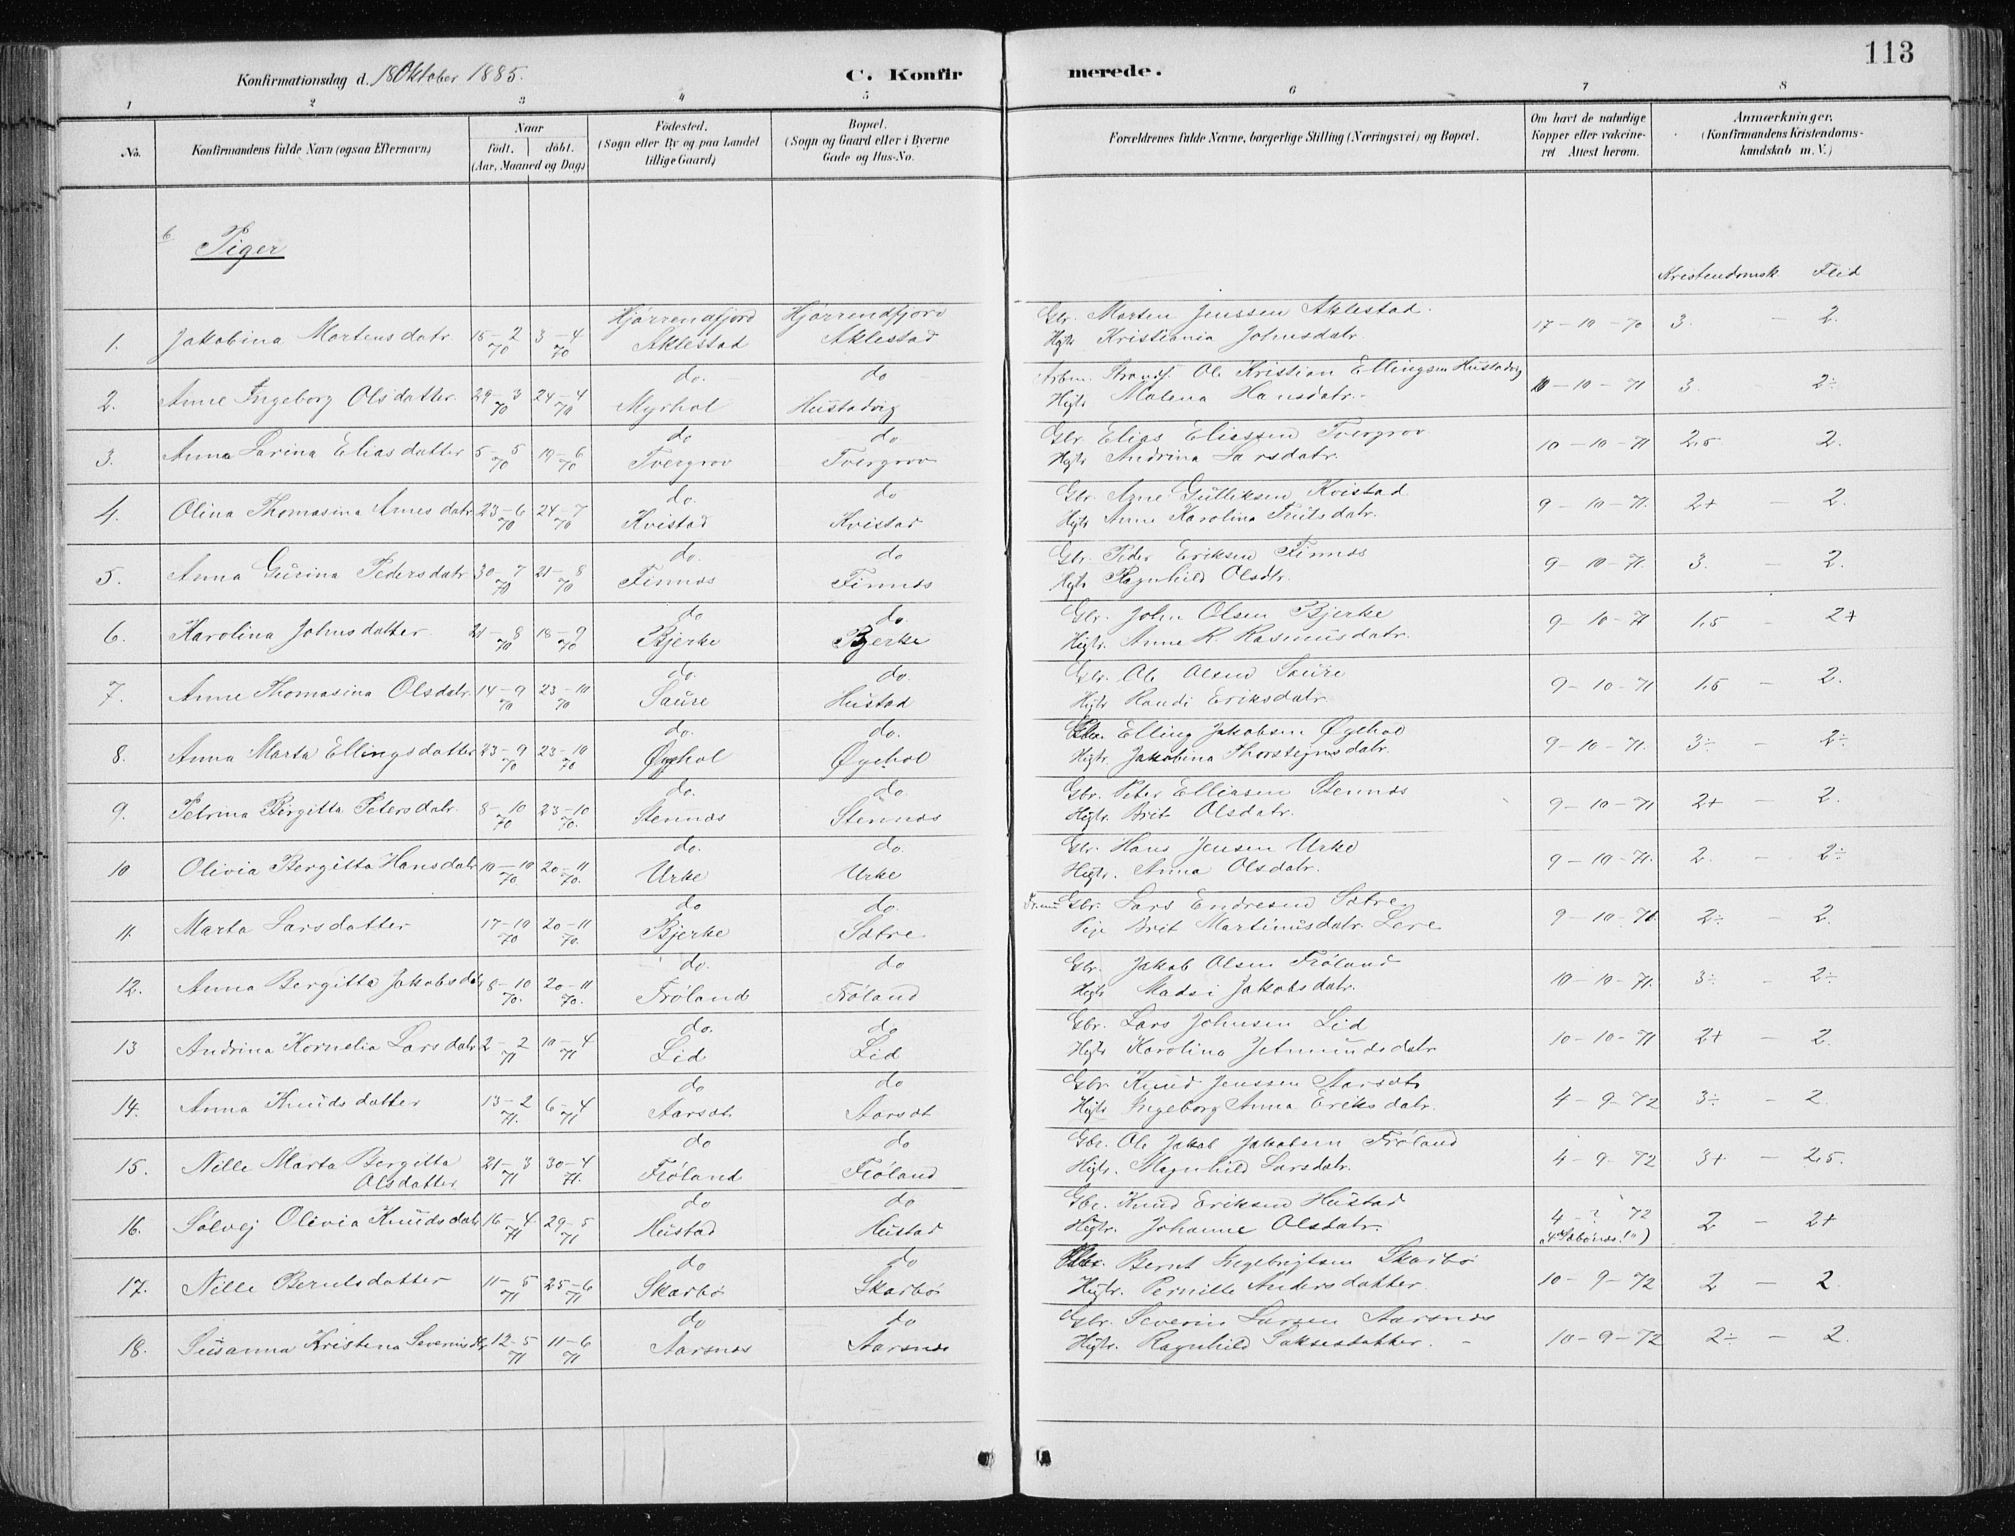 113
Konfirmationsdag d. 18 Oktober 1885.
C. Konfir merede.
1 2 3 4 5 6 7 8
No. Konfirmandens fulde Navn (ogsaa Efternavn) Naar født. døbt. (Aar, Maaned og Dag) Fødested. (Sogn eller By og paa Landet tillige Gaard) Bopæl. (Sogn og Gaard eller i Byerne Gade og Hus-No. Forældrenes fulde Navne, borgerlige Stilling (Næringsvei) og Bopæl. Om havt de naturlige Kopper eller vakcineret Attest herom. Anmærkninger. (Konfirmandens Kristendomskundskab m. V.)
Piger
Kristendomsk. Flid
1. Jakobina Martensdatr. 15-2/70 3-4/70 Hjørrendfjord Aklestad Hjørrendfjord Aklestad Gbr. Morten Jenssen Aklestad. Hgtr Kristiania Johnsdatr. 17-10-70 3. - 2.
2. Anne Ingeborg Olsdatter. 29-3/70 24-4/70 do. Myrhol do Hustadvig Arben. Strands. Ole Kristian Ellingsen Hustadvig Hgtr Malena Hansdatr. 10-10-71 3. 2÷
3. Anna Larina Eliasdatter 5-5/70 19-6/70 do Tvergrov do Tvergrov Gbr. Elias Eliassen Tvergrov Hgtr Andrina Larsdatr. 10-10-71 2,5 2.
4. Olina Thomasina Arnesdatr 23-6/70 24-7/70 do. Kvistad do Kvistad Gbr. Arne Gulliksen Kvistad Hgtr Anne Karolina Knutsdatr. 9-10-71. 2+ - 2.
5. Anna Gurina Pedersdatr. 30-7/70 21-8/70 do. Finnæs do Finnæs Gbr. Peder Eriksen Finnæs Hgtr Ragnhild Olsdtr. 9-10-71 3. - 2.
6. Karolina Johnsdatter. 21-8/70 18-9/70 do Bjerke do. Bjerke Gbr. John Olsen Bjerke Hgtr. Anne R. Rasmusdatr. 9-10-71 1,5 - 2+
7. Anne Thomasina Olsdatr. 14-9/70 23-10/70 do. Saure do. Hustad Gbr. Ole Olsen Saure Hgtr Randi Eriksdatr. 9-10-71 1,5 - 2.
8. Anna Marta Ellingsdatter 23-9/70 23-10/70 do. Øyehol do. Øyehol Gbr. Elling Jakobsen Øyehol Hgtr. Jakobina Thorsteinsdatr. 9-10-71. 3÷ - 2÷
9. Petrina Birgitta Petersdatr. 8-10/70 23-10/70. do. Stennæs do. Stennæs Gbr. Peter Elliasen Stennæs Hgtr. Brit Olsdatr. 9-10-71 2+ - 2.
10 Olivia Bergitta Hansdatr 10-10/70. 20-11/70. do. Urke do. Urke Gbr. Hans Jensen Urke Hgtr. Anna Olsdatr. 9-10-71. 2. - 2÷
11. Marta Larsdatter 17-10/70 20-11/70. do Bjerke do. Sætre Gbr. Lars Endresen Sætre Pige Brit Martinusdatr. Lere 9-10-71. 2÷ - 2.
12. Anna Bergitta Jakobsdtr 8-10/70. 20-11/70. do. Frøland do Frøland Gbr. Jakob Olsen Frøland Hgtr Madsi Jakobsdatr. 10-10-71. 3÷ - 2÷
13 Andrina Kornelia Larsdatr 2-2/71 10-4/71 do. Lid do Lid Gbr. Lars Johnsen Lid Hgtr Karolina Jetmundsdatr. 10-10-71 2+ - 2.
14. Anna Knudsdatter 13-2/71. 6-4/71 do Aarsæt do Aarsæt Gbr Knud Jenssen Aarsæt Hgtr Ingeborg Anna Eriksdatr. 4-9-72 3÷ - 2.
15. Nille Marta Bergitta Olsdatter 21-3/71 30-4/71. do Frøland do Frøland Gbr. Ole Jakob Jakobsen Frøland Hgtr. Magnhild Larsdatr. 4-9-72 3+ - 2,5.
16. Sølvej Olivia Knudsdatr 16-4/71 29-5/71 do Hustad do Hustad Gbr. Knud Eriksen Hustad Hgtr. Johanne Olsdatr. 4-?-72 2 - 2+
17. Nille Berntsdatter 11-5/71 25-6/71 do Skarbø do Skarbø Gbr. Bernt Ingebrigtsen Skarbø Hgtr. Pernille Andersdatter. 10-9-72 2 - 2
18. Susanna Kristena Severinsdtr 12-5/71 11-6/71 do Aarsnæs do Aarsnæs Gbr. Severin Larsen Aarsnæs Hgtr. Ragnhild Saksesdatter. 10-9-72 2÷ - 2.